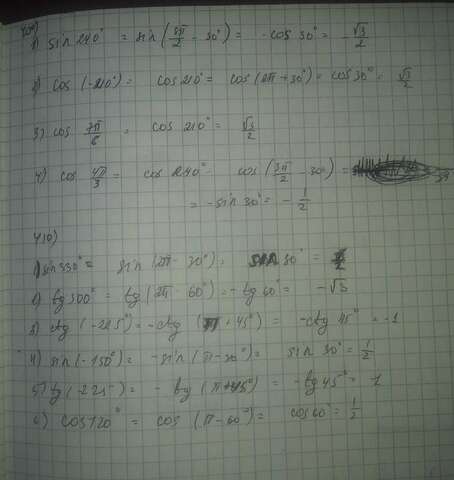 409)
1) sin 240° = sin (3π/2 - 30°) = - cos 30° = - √3/2
2) cos (-210°) = cos 210° = cos (2π + 30°) = cos 30° = √3/2
3) cos 7π/6 = cos 210° = √3/2
4) cos 4π/3 = cos 240° cos (3π/2 - 30°) =
= - sin 30° = - 1/2
410)
1) sin 330° = sin (2π - 30°) = sin 30° =
2) tg 300° = tg (2π - 60°) = - tg 60° = - √3
3) ctg (-225°) = - ctg (π + 45°) = - ctg 45° = -1
4) sin (-150°) = - sin (π - 30°) = sin 30° = 1/2
5) tg (-225°) = - tg (π + 45°) = - tg 45° = 1
6) cos 120° = cos (π - 60°) = cos 60 = 1/2